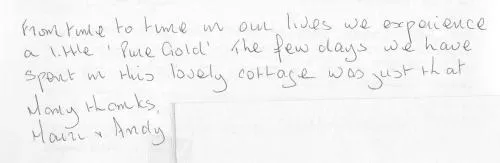 From time to time in our lives we experience
a little 'Pure Gold' The few days we have
spent in this lovely cottage was just that
Many thanks,
Mairi + Andy